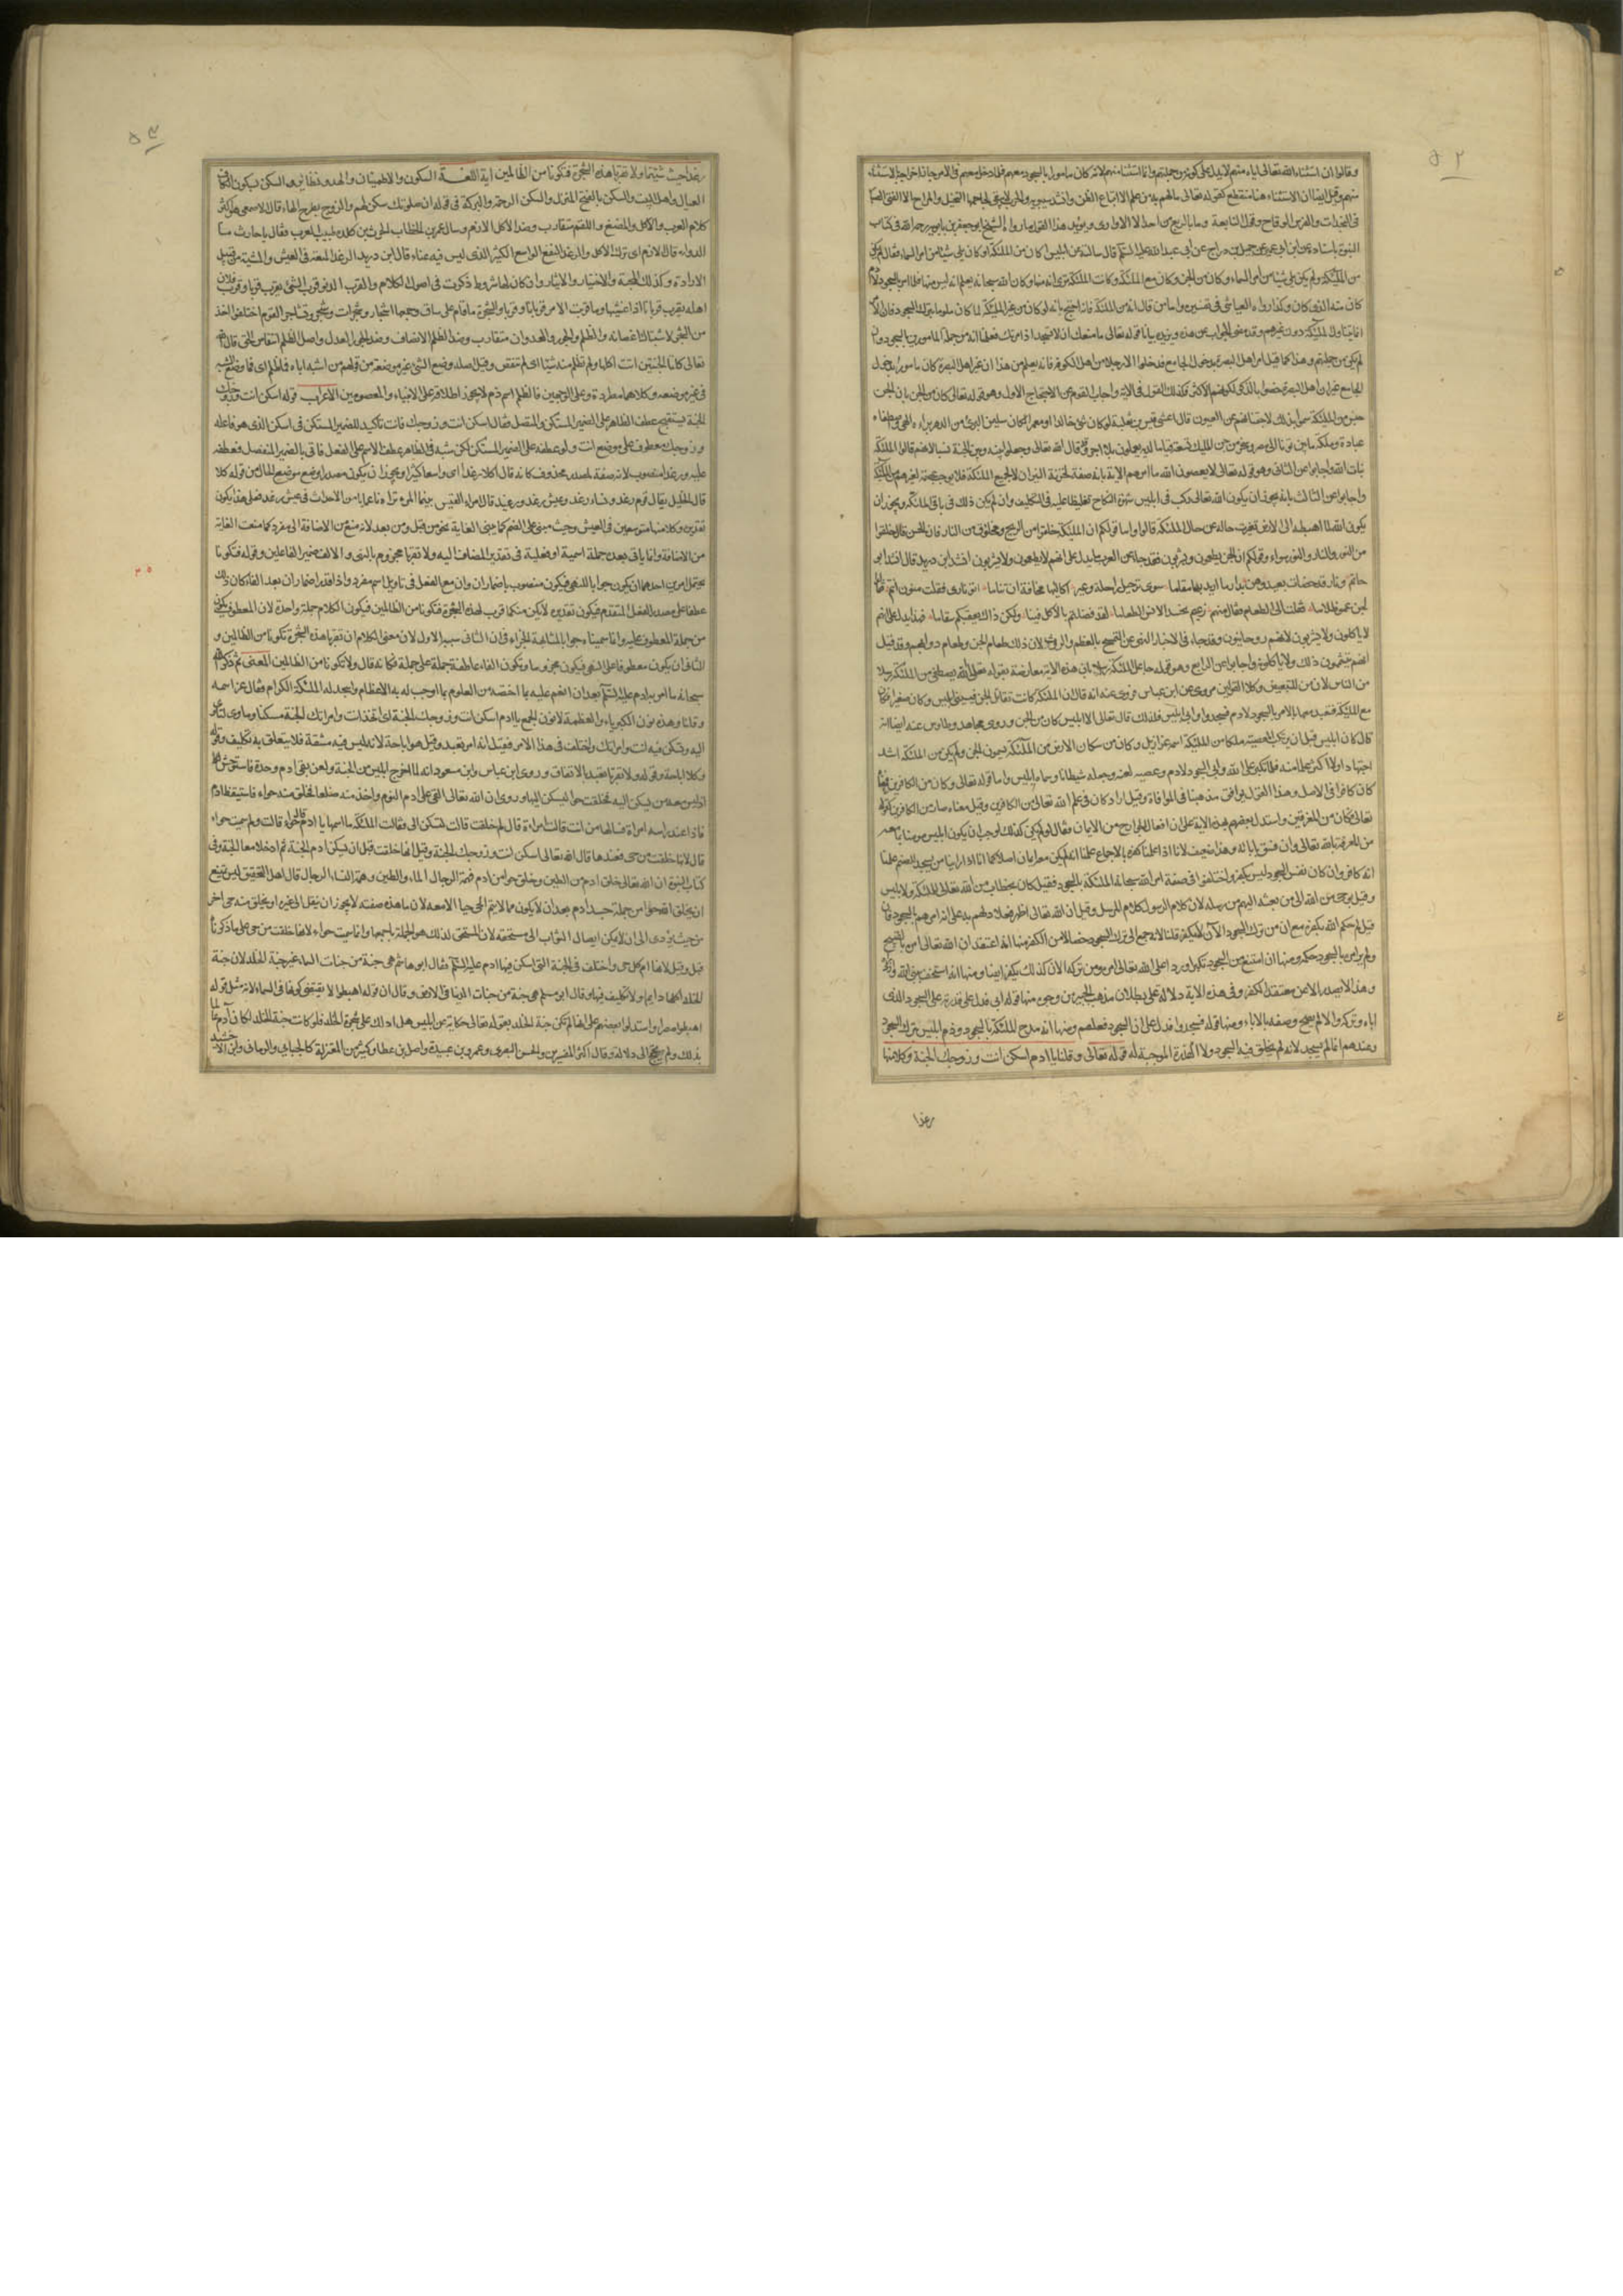 ٥٢
وقالوا ان استثناء الله تعالى اياه منهم لا يدل على كونه من جملتهم وانما استثناه منهم لانه كان مامورا بالسجود معهم فلما دخل معهم في الامر جاز اخراجه بالاستثناء
منهم وقيل ايضا ان الاستثناء هنا منقطع كقوله تعالى ما لهم به من علم الا اتباع الظن وانشد سيبويه والحرب لا يبقى لجاحمها التخيل والمراح الا الفتى الصبار
في النجدات والفرس الوقاح وقول النابغة وما بالربع من احد الا الاواري ويؤيد هذا القول ما رواه الشيخ ابو جعفر بن بابويه رحمه الله في كتاب
النبوة باسناده عن ابن ابي عمير عن جميل بن دراج عن ابي عبد الله عليه السلام قال سالته عن ابليس اكان من الملئكة او كان يلي شيئا من امر السماء فقال لم يكن
من الملئكة ولم يكن يلي شيئا من امر السماء وكان من الجن وكان مع الملئكة وكانت الملئكة ترى انه منها وكان الله سبحانه يعلم انه ليس منها فلما امر بالسجود لادم
كان منه الذي كان وكذا رواه العياشي في تفسيره واما من قال انه من الملئكة فانه احتج بانه لو كان من غير الملئكة لما كان ملوما بترك السجود فان الامر
انما يتناول الملئكة دون غيرهم وقد مضى الجواب عن هذا ويزيده بيانا قوله تعالى ما منعك ان لا تسجد اذ امرتك فعلمنا انه من جملة المامورين بالسجود وان
لم يكن من جملتهم وهذا كما قيل امر اهل البصرة بدخول الجامع فدخلوا الا رجلا من اهل الكوفة فانه يعلم من هذا ان غير اهل البصرة كان مامورا بدخول
الجامع غير ان اهل البصرة خصوا بالذكر لكونهم الاكثر فكذلك القول في الاية واجاب القوم عن الاحتجاج الاول وهو قوله تعالى كان من الجن بان الجن
جنس من الملئكة سموا بذلك لاجتنانهم عن العيون قال اعشى قيس بن ثعلبة لو كان شيء خالدا او معمرا لكان سليمن البريء من الدهر براه الهي واصطفاه
عبادة وملكه ما بين ثريا الى مصر وسخر من جن الملئك تسعة قياما لديه يعملون بلا اجر وقد قال الله تعالى وجعلوا بينه وبين الجنة نسبا لانهم قالوا الملئكة
بنات الله واجابوا عن الثاني وهو قوله تعالى لا يعصون الله ما امرهم الاية بانه صفة لخزنة النيران لا لجميع الملئكة فلا يوجب عصمة لغيرهم من الملئكة
واجابوا عن الثالث بانه يجوز ان يكون الله تعالى ركب في ابليس شهوة النكاح تغليظا عليه في التكليف وان لم يكن ذلك في باقي الملئكة ويجوز ان
يكون الله لما اهبطه الى الارض تغيرت حاله عن حال الملئكة قالوا واما قولكم ان الملئكة خلقوا من الريح ومخلوق من النار فان الحسن قال خلقوا
من النور والنار والنور سواء وقولكم ان الجن يطعمون ويشربون فقد جاء عن العرب ما يدل على انهم لا يطعمون ولا يشربون انشد ابن دريد قال انشد ابو
حاتم ونار قد حضات بعيد وهن بدار ما اريد بها مقاما سوى ترحيل راحلة وعين اكالئها مخافة ان تناما اتوا ناري فقلت منون انتم فقالوا
الجن قلت عموا ظلاما فقلت الى الطعام فقال منهم زعيم نحسد الانس الطعاما لقد فضلتم بالاكل فينا ولكن ذاك يعقبكم سقاما فهذا يدل على انهم
لا ياكلون ولا يشربون لانهم روحانيون وقد جاء في الاخبار النهي عن التمسح بالعظم والروث لان ذلك طعام الجن وطعام دوابهم وقد قيل
انهم يتشممون ذلك ولا ياكلونه واجابوا عن الرابع وهو قوله جاعل الملئكة رسلا بان هذه الاية معارضة بقوله تعالى الله يصطفي من الملئكة رسلا
من الناس لان من للتبعيض وكلا القولين مروي عن ابن عباس فروي عنه انه قال ان الملئكة كانت تقاتل الجن فسبي ابليس وكان صغيرا فكان
مع الملئكة فتعبد معها بالامر بالسجود لادم فسجدوا وابى ابليس فلذلك قال تعالى الا ابليس كان من الجن وروى مجاهد وطاوس عنه ايضا انه
قال كان ابليس قبل ان يرتكب المعصية ملكا من الملئكة اسمه عزازيل وكان من سكان الارض من الملئكة يسمون الجن ولم يكن من الملئكة اشد
اجتهادا ولا اكثر علما منه فلما تكبر على الله وابى السجود لادم وعصيه لعنه وجعله شيطانا وسماه ابليس واما قوله تعالى وكان من الكافرين قيل
كان كافرا في الاصل وهذا القول يوافق مذهبنا في الموافاة وقيل اراد كان في علم الله تعالى من الكافرين وقيل معناه صار من الكافرين كقوله
تعالى فكان من المغرقين واستدل بعضهم بهذه الاية على ان افعال الجوارح من الايمان فقال لو لم يكن كذلك لوجب ان يكون ابليس مؤمنا بما معه
من المعرفة بالله تعالى وان فسق بابائه وهذا ضعيف لانا اذا علمنا كفره بالاجماع علمنا انه لم يكن معه ايمان اصلا كما انا اذا راينا من يسجد للصنم علمنا
انه كافر وان كان نفس السجود ليس بكفر واختلفوا في صفة امر الله سبحانه الملئكة بالسجود فقيل كان بخطاب من الله تعالى للملئكة ولابليس
وقيل بوحي من الله الى من بعثه اليهم من رسله لان كلام الرسول كلام المرسل وقيل ان الله تعالى اظهر فعلا دلهم به على انه امرهم بالسجود فان
قيل لم حكم الله بكفره مع ان من ترك السجود الان لا يكفر قلنا لانه جمع الى ترك السجود خصالا من الكفر منها انه اعتقد ان الله تعالى امر بالقبيح
ولم ير امره بالسجود حكمة ومنها انه امتنع من السجود تكبرا وردا على الله تعالى امره ومن تركه الان كذلك يكفر ايضا ومنها انه استخف بنبي الله وازدراه
وهذا لا يصدر الا من معتقد الكفر وفي هذه الاية دلالة على بطلان مذهب الجبر من وجوه منها قوله ابى فدل على قدرته على السجود الذي
اباه وتركه والا لم يصح وصفه بالاباء ومنها قوله فسجدوا فدل على ان السجود فعلهم ومنها انه مدح الملئكة بالسجود وذم ابليس بترك السجود
وعندهم انما لم يسجد لانه لم يخلق فيه السجود ولا القدرة الموجبة له قوله تعالى وقلنا يا ادم اسكن انت وزوجك الجنة وكلا منها
رغدا
٥٣
رغدا حيث شئتما ولا تقربا هذه الشجرة فتكونا من الظالمين اية اللغة السكون والاطمينان والهدو نظائر والسكن بسكون الكاف
العيال واهل البيت والسكن بالفتح المنزل والسكن الرحمة والبركة في قوله ان صلوتك سكن لهم والزوج بطرح الهاء قال الاصمعي هو اكثر
كلام العرب والاكل والمضغ واللقم متقارب وضد الاكل الازم وسال عمر بن الخطاب الحرث بن كلدة طبيب العرب فقال يا حارث ما
الدواء قال الازم اى ترك الاكل والرغد النفع الواسع الكثير الذي ليس فيه عناء قال ابن دريد الرغد السعة في العيش والمشية من قبيل
الارادة وكذلك المحبة والاختيار والايثار وان كان لها شروط ذكرت في اصول الكلام والقرب الدنو قرب الشيء يقرب قربا وقرب فلان
اهله يقرب قربانا اذا غشيها وما قربت الامر قربانا وقربا والشجرة ما قام على ساق وجمعها اشجار وشجرات وشجر وتشاجر القوم اختلفوا اخذ
من الشجر لاشتباك اغصانه والظلم والجور والعدوان متقارب وضد الظلم الانصاف وضد الجور العدل واصل الظلم انتقاص الحق قال الله
تعالى كلتا الجنتين اتت اكلها ولم تظلم منه شيئا اى لم تنقص وقيل اصله وضع الشيء غير موضعه من قولهم من اشبه اباه فما ظلم اى فما وضع الشبه
في غير موضعه وكلاهما مطرد وعلى الوجهين فالظلم اسم ذم لا يجوز اطلاقه على الانبياء والمعصومين الاعراب قوله اسكن انت وزوجك
الجنة يستقبح عطف الظاهر على الضمير المستكن والمتصل فقال اسكن انت وزوجك فانت تاكيد للضمير المستكن في اسكن الذي هو فاعله
وزوجك معطوف على موضع انت ولو عطفه على الضمير المستكن لكن شبه في الظاهر عطف الاسم على الفعل فاتى بالضمير المنفصل فعطفه
عليه ورغدا منصوب لانه صفة لمصدر محذوف كانه قال اكلا رغدا اى واسعا كثيرا ويجوز ان يكون مصدرا وضع موضع الحال من قوله كلا
قال الخليل يقال قوم رغد ونساء رغد وعيش رغد ورغيد قال امرء القيس بينما المرء تراه ناعما يامن الاحداث في عيش رغد فعلى هذا يكون
تقديره وكلا منها متوسعين في العيش وحيث مبني على الضم كما يبنى الغاية نحو من قبل ومن بعد لانه منع من الاضافة الى مفرد كما منعت الغاية
من الاضافة وانما ياتي بعده جملة اسمية او فعلية في تقدير المضاف اليه ولا تقربا مجزوم بالنهي والالف ضمير الفاعلين وقوله فتكونا
يحتمل امرين احدهما ان يكون جوابا للنهي فيكون منصوبا باضمار ان وان مع الفعل في تاويل اسم مفرد واذا قدر اضمار ان بعد الفاء كان ذلك
عطفا على مصدر الفعل المتقدم فيكون تقديره لا يكن منكما قرب لهذه الشجرة فتكونا من الظالمين فيكون الكلام جملة واحدة لان المعطوف يكون
من جملة المعطوف عليه وانما سميناه جوابا لمشابهة الجزاء في ان الثاني سببه الاول لان معنى الكلام ان تقربا هذه الشجرة تكونا من الظالمين و
الثاني ان يكون معطوفا على النهي فيكون مجزوما وتكون الفاء عاطفة جملة على جملة فكانه قال ولا تكونا من الظالمين المعنى ثم ذكر الله
سبحانه ما امر به ادم عليه السلام بعد ان انعم عليه بما اختصه من العلوم بما اوجب له به الاعظام واسجد له الملئكة الكرام فقال عز اسمه
وقلنا وهذه نون الكبرياء والعظمة لا نون الجمع يا ادم اسكن انت وزوجك الجنة اى اتخذ انت وامراتك الجنة مسكنا وماوى لتاوي
اليه وتسكن فيه انت وامراتك واختلف في هذا الامر فقيل انه امر تعبد وقيل هو اباحة لانه ليس فيه مشقة فلا يتعلق به تكليف وقوله
وكلا اباحة وقوله ولا تقربا تعبد بالاتفاق وروى ابن عباس وابن مسعود انه لما اخرج ابليس من الجنة ولعن بقي ادم وحده فاستوحش
اذ ليس معه من يسكن اليه فخلقت حوا ليسكن اليها وروي ان الله تعالى القى على ادم النوم واخذ منه ضلعا فخلق منه حواء فاستيقظ ادم
فاذا عند راسه امراة فسالها من انت قالت امراة قال لم خلقت قالت لتسكن الي فقالت الملئكة ما اسمها يا ادم قال حواء قالت ولم سميت حواء
قال لانها خلقت من حي فعندها قال الله تعالى اسكن انت وزوجك الجنة وقيل انها خلقت قبل ان يسكن ادم الجنة ثم ادخلا معا الجنة وفي
كتاب النبوة ان الله تعالى خلق ادم من الطين وخلق حوا من ادم فهمة الرجال الماء والطين وهمة النساء الرجال قال اهل التحقيق ليس يمتنع
ان يخلق الله حوا من جملة جسد ادم بعد ان لا يكون مما لا يتم الحي حيا الا معه لان ما هذه صفته لا يجوز ان ينقل الى غيره او يخلق منه حي اخر
من حيث يؤدي الى ان لا يمكن ايصال الثواب الى مستحقه لان المستحق لذلك هو الجملة باجمعها وانما سميت حواء لانها خلقت من حي على ما ذكرناه
قبل وقيل لانها ام كل حي واختلف في الجنة التي اسكن فيها ادم عليه السلام فقال ابو هاشم هي جنة من جنات السماء غير جنة الخلد لان جنة
الخلد اكلها دايم ولا تكليف فيها وقال ابو مسلم هي جنة من جنات الدنيا في الارض وقال ان قوله اهبطوا لا يقتضي كونها في السماء لانه مثل قوله
اهبطوا مصرا واستدل بعضهم على انها لم تكن جنة الخلد بقوله تعالى حكاية عن ابليس هل ادلك على شجرة الخلد فلو كانت جنة الخلد لكان ادم عالما
بذلك ولم يحتج الى دلالة وقال اكثر المفسرين والحسن البصري وعمرو بن عبيدة واصل بن عطا وكثير من المعتزلة كالجبائي والرماني وابن الاخشيد